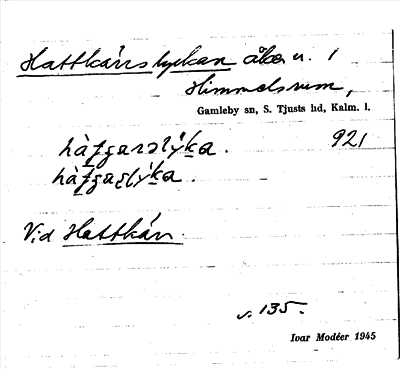 Hattkärrslyckan åker n. i
Himmelsrum,
Gamleby sn, S. Tjusts hd, Kalm. l.
921
Vid Hattkärr.
s. 135.
Ivar Modéer 1945